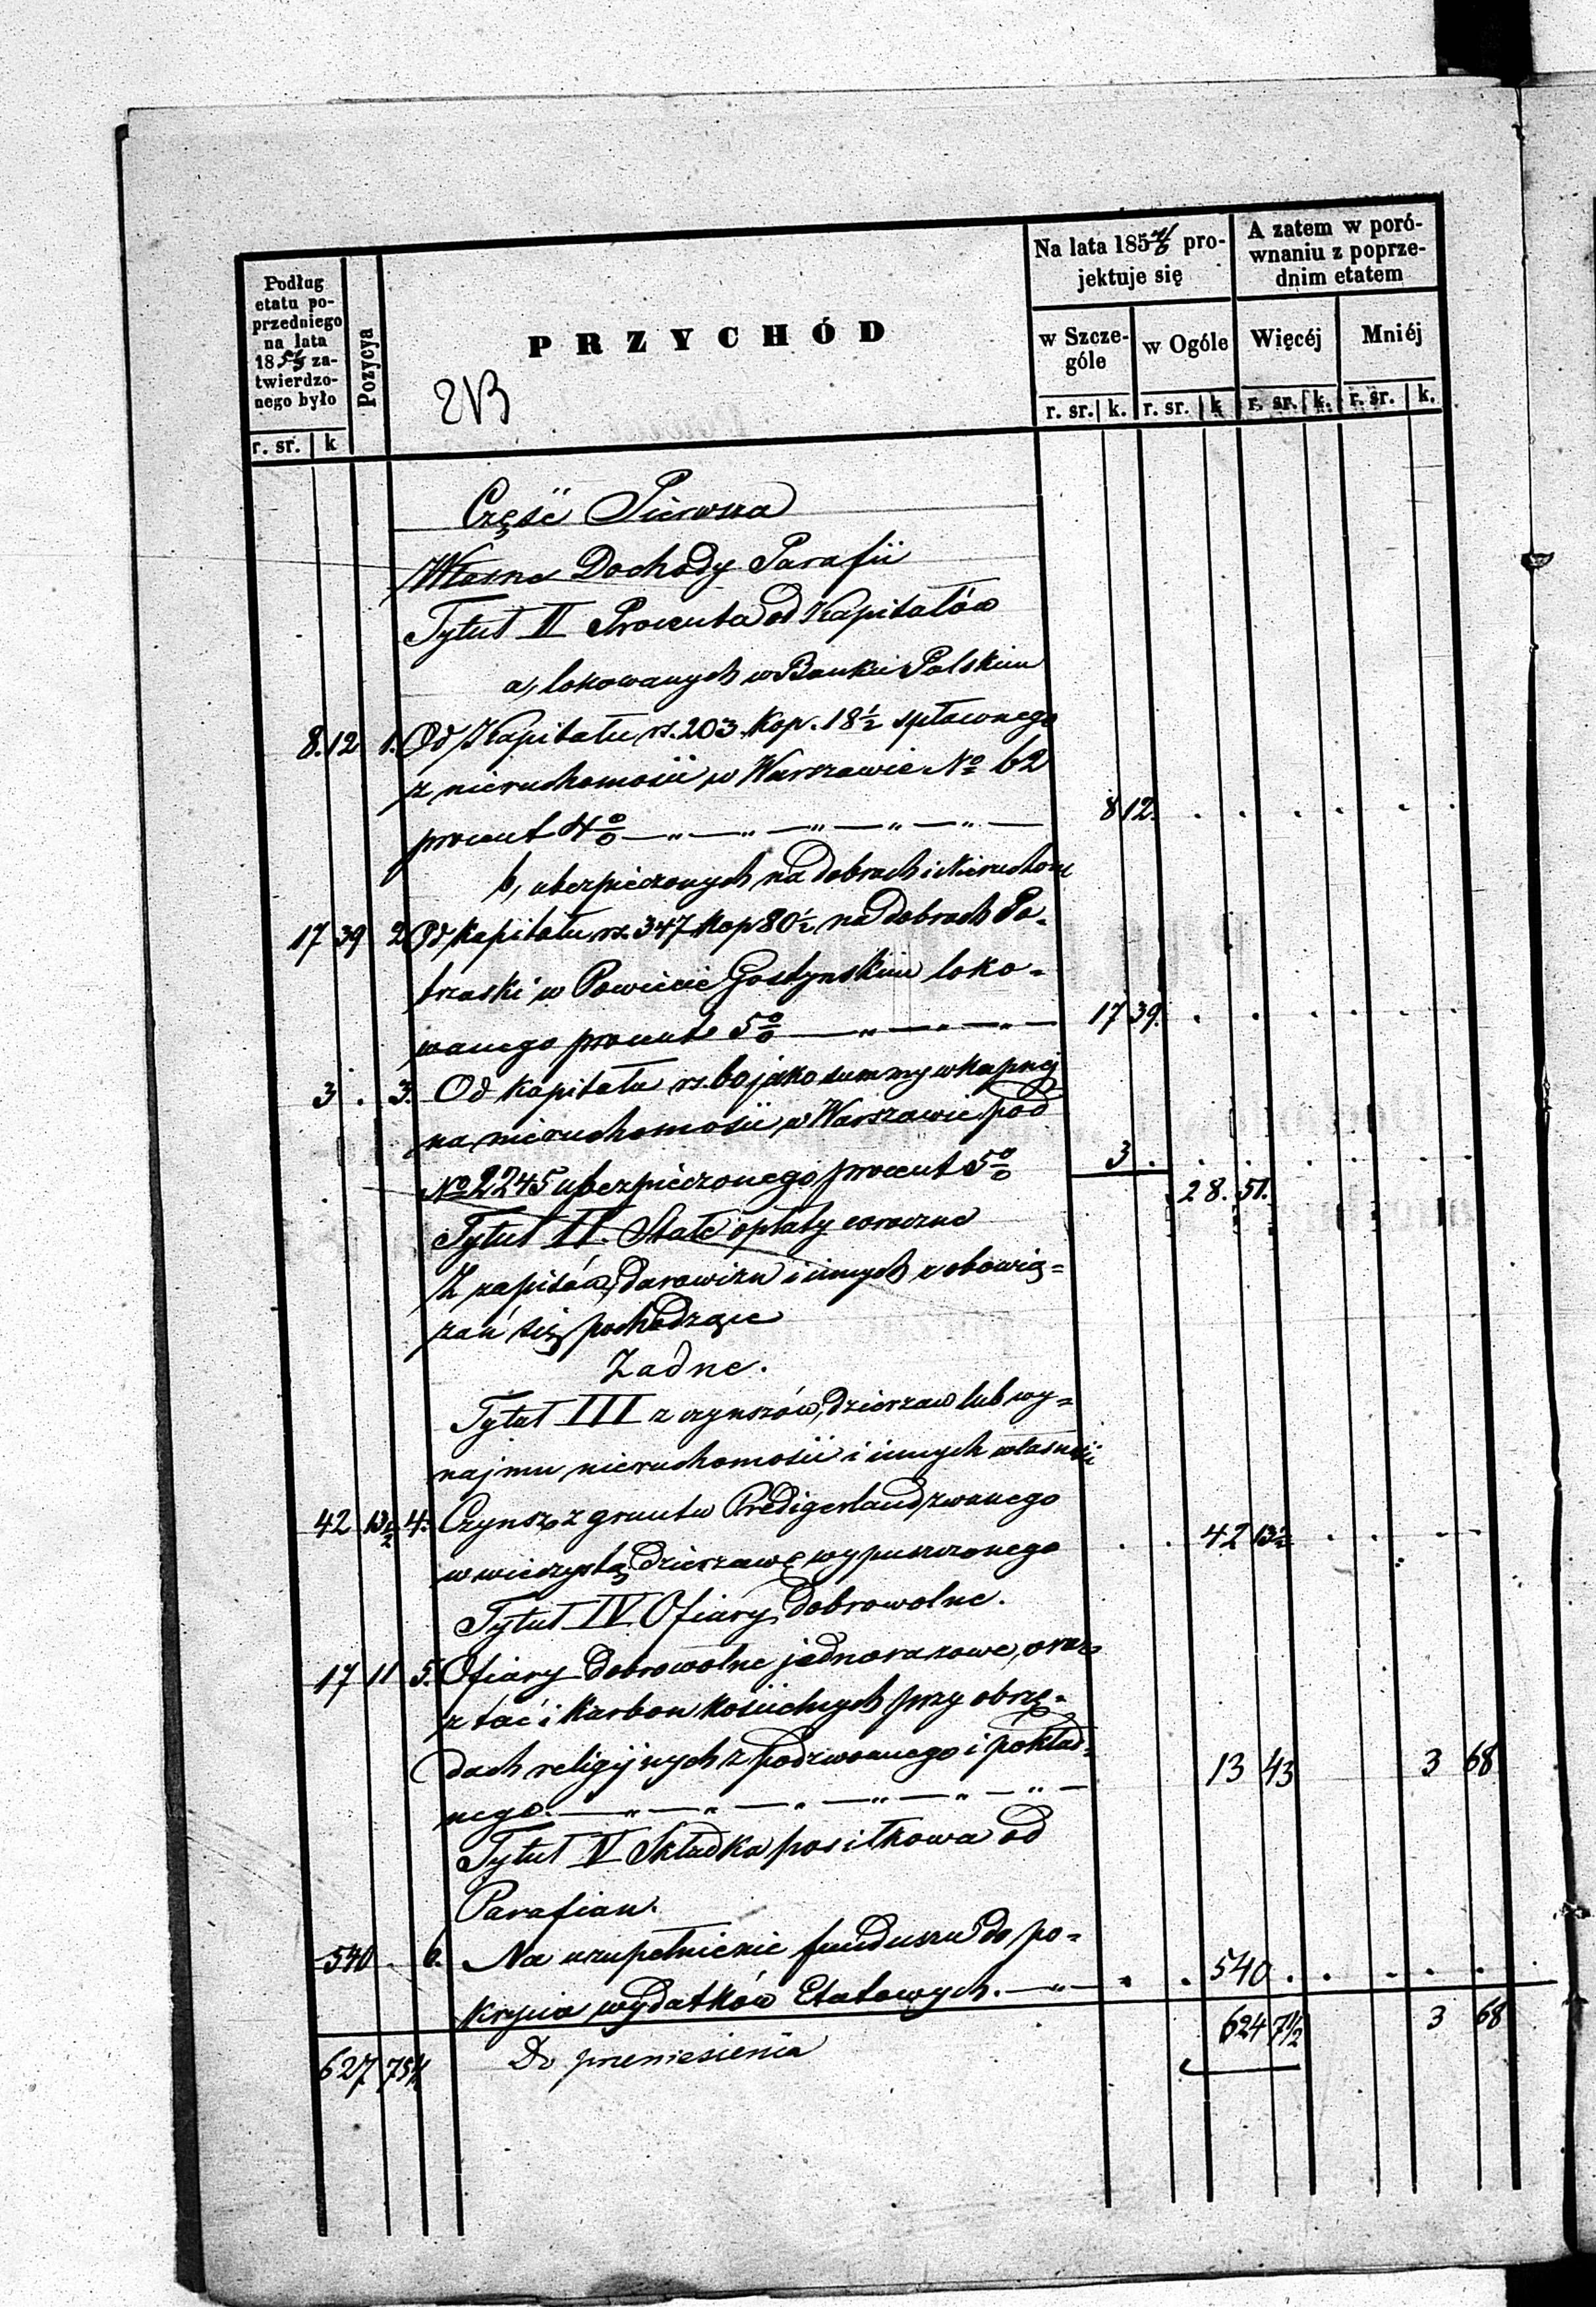 Podług
etatu po-
przedniego
na lata
18 51/3 za-
twierdzo-
nego było
r. sr. k
Pozycya
PRZYCHÓD
Na lata 185 4/6 pro-
jektuje się
w Szcze-
góle
w Ogóle
r. sr. k. r. sr. k
A zatem w poró-
wnaniu z poprze-
dnim etatem
Więcéj Mniéj
r. sr. k. r. sr. k.
Część Pierwsza
Własne Dochody Parafii
Tytuł II Procenta od Kapitałów
a, lokowanych w Banku Polskim
8. 12 1. Od Kapitału rs. 203 Kop. 18½ spłaconego
z nieruchomości w Warszawie No 62
procent 4% — „ — „ — „ — „ — „ — 8 12. . . . . . .
b, ubezpieczonych na dobrach i Nieruchom
17 39 2 Od Kapitału rs. 347 Kop 80½ na dobrach Po-
trzaski w Powiecie Gostynskim loko-
wanego procent 5% — „ — „ — „ — 17 39. . . . . . .
3 . 3. Od Kapitału rs. 60 jako summy wkupnej
na nieruchomości w Warszawie pod
No 2245 ubezpieczonego procent 5% 3 . . . . . . .
28. 51.
Tytuł II. Stałe opłaty coroczne
Z zapisów, darowizn i innych zobowią-
zań się pochodzące
Żadne.
Tytuł III z czynszów, dzierzaw lub wy-
najmu nieruchomości i innych własności
42 13½ 4. Czynsz z gruntu Predigerland zwanego
w wieczystą dzierzawę wypuszczonego . . 42 13½ . . . .
Tytuł IV Ofiary dobrowolne.
17 11 5. Ofiary dobrowolne jednorazowe, oraz
z tać i Karbon Kościelnych przy obrzę-
dach religijnych z podzwonnego i pokład-
nego. — „ — „ — „ — „ — „ — „ — 13 43 3 68
Tytuł V Składka posiłkowa od
Parafian.
540 . 6. Na uzupełnienie funduszu do po-
krycia wydatków Etatowych. — „ — . . 540 . . . . .
627 75½ Do przeniesienia 624 7½ 3 68